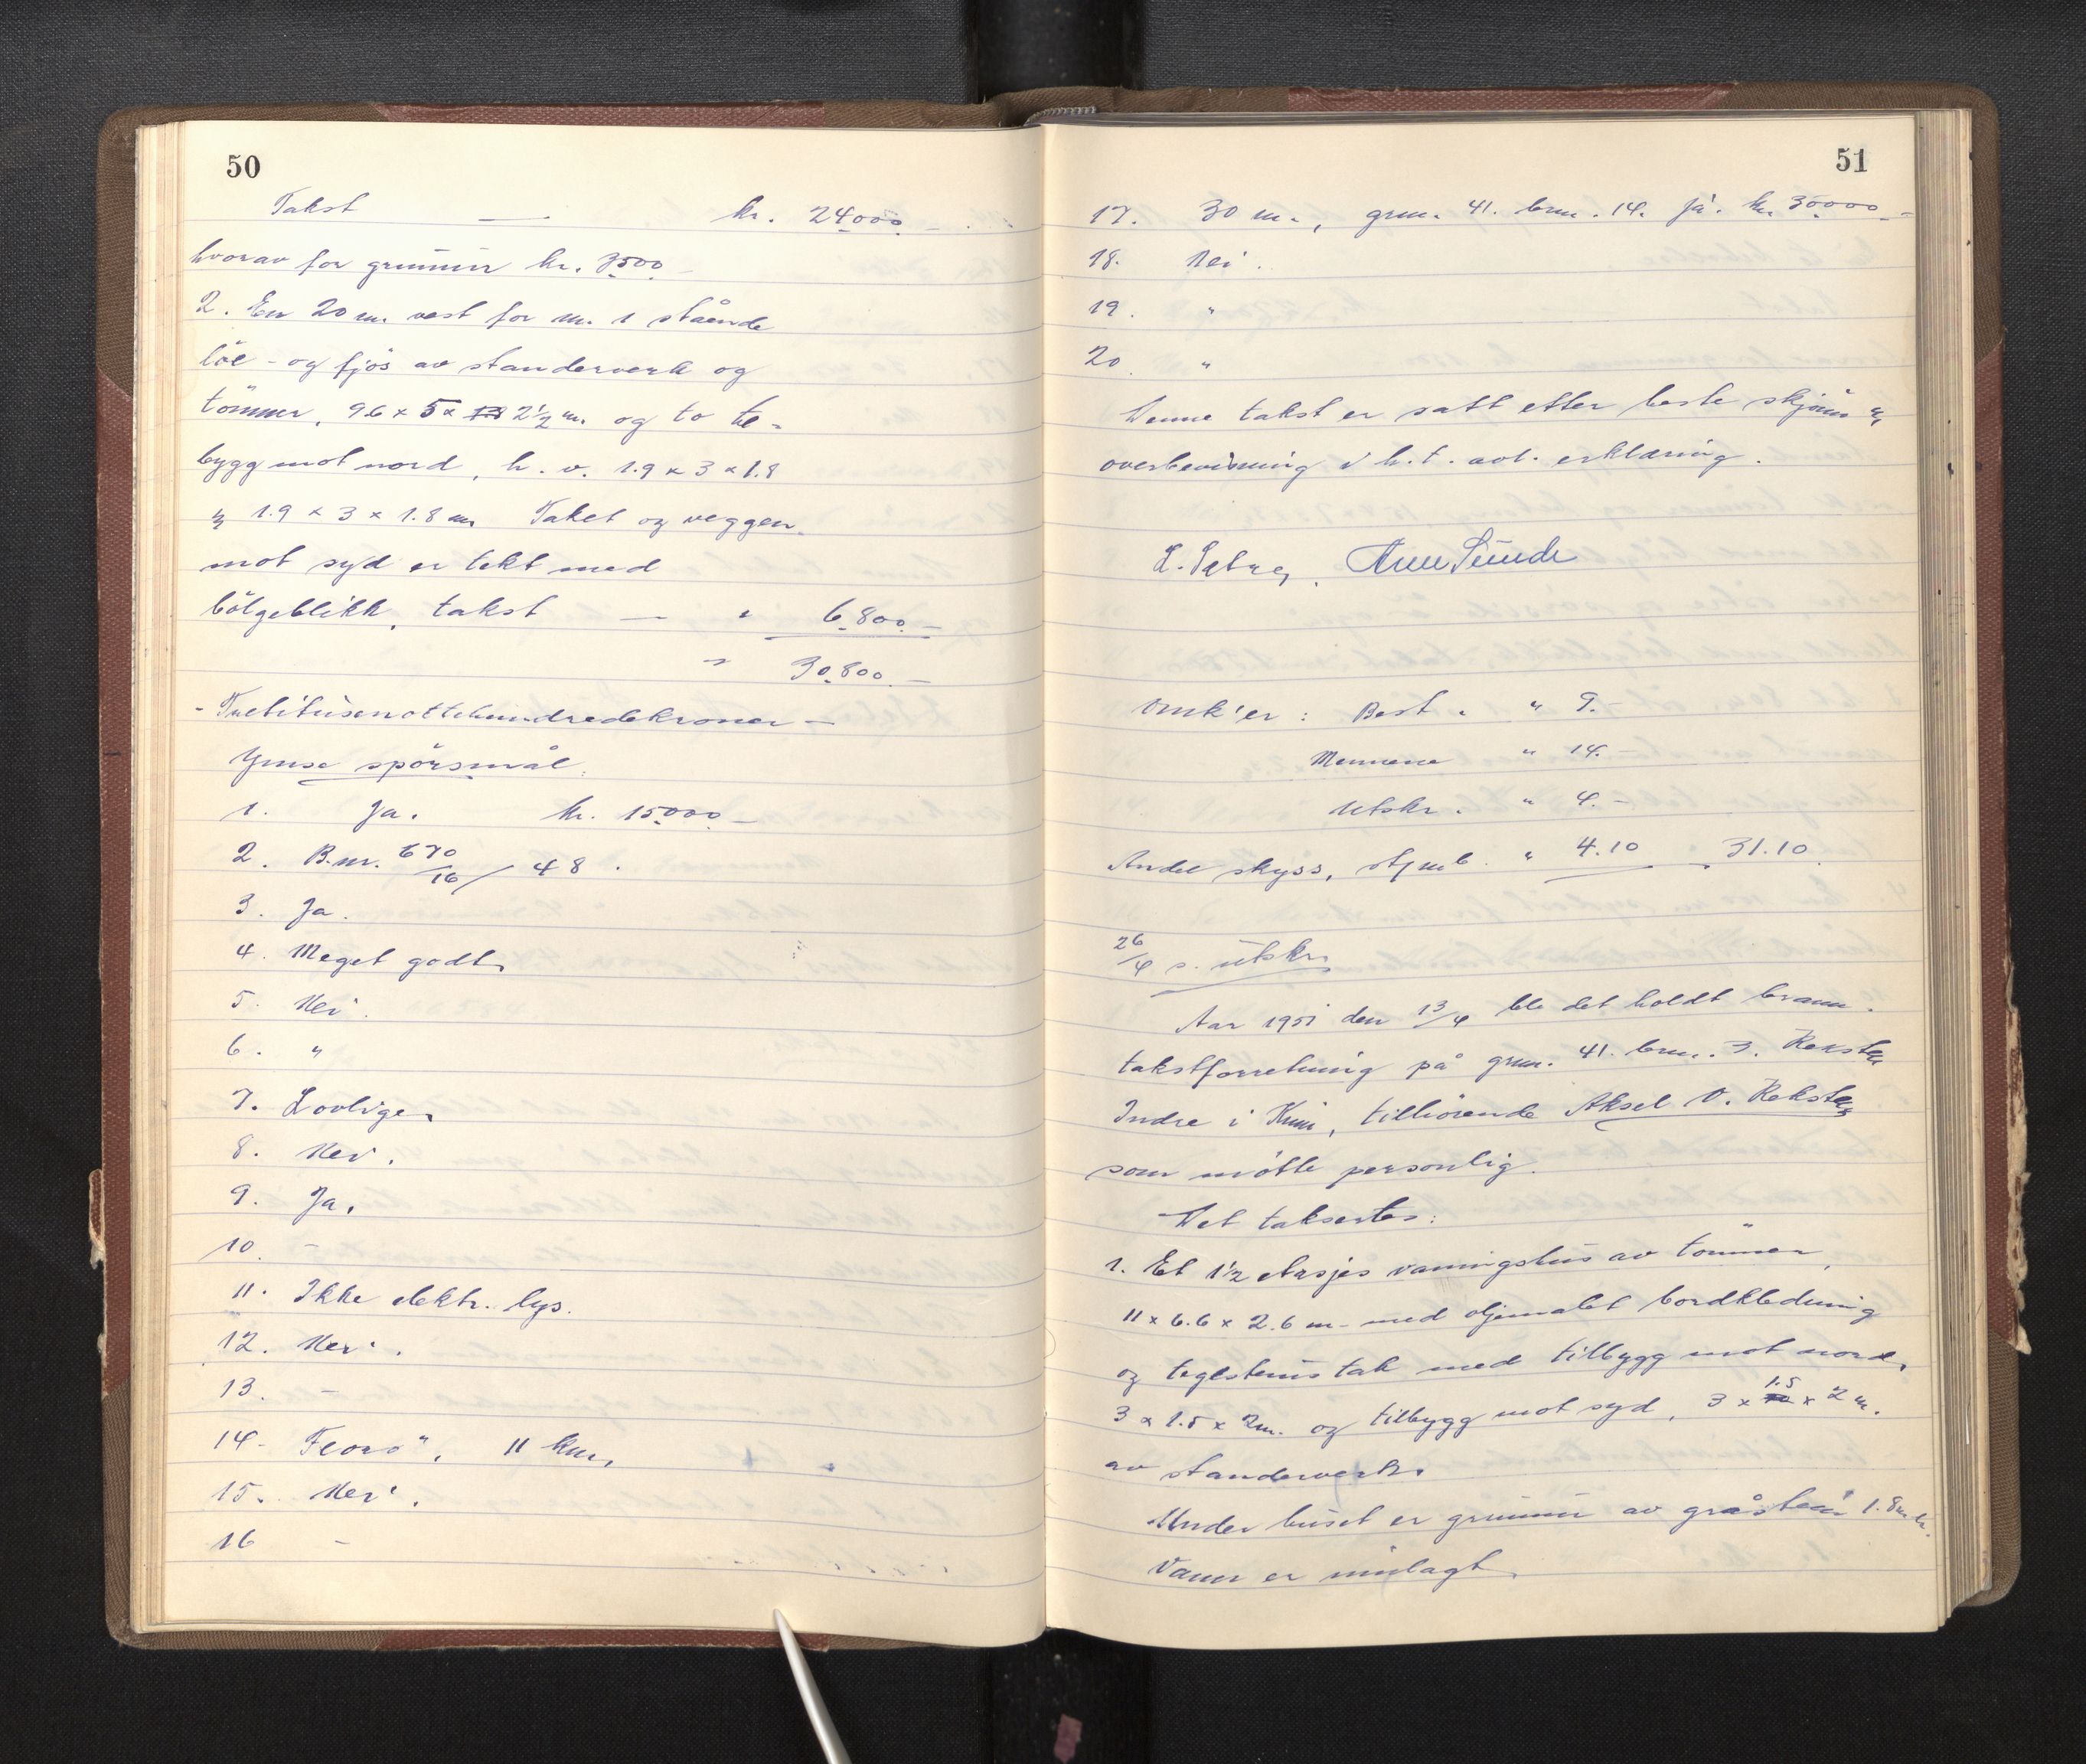 50
Takst — kr. 24000.-
hvorav for grunnur kr. 3500.-
2. En 20 m. vest for m. 1 stående
löe - og fjös av standerverk og
tömmer, 9.6 x 5 x 2½ m. og to te-
bygg mot nord, h. v. 1.9 x 3 x 1.8
og 1.9 x 3 x 1.8 m Taket og veggen
mot syd er tekt med
bölgeblikk, takst — " 6.800.-
" 30.800.-
- Trettitusenottehundredekroner -
Ymse spörsmål.
1. Ja. kr. 15000.-
2. B.nr. 670/16 / 48.
3. Ja.
4. Meget godt.
5. Nei.
6. "
7. Lovlige.
8. Nei.
9. Ja.
10. -
11. Ikke elektr. lys.
12. Nei.
13. -
14. Florö, 11 km.
15. Nei.
16 -
51
17. 30 m., grnr. 41. brnr. 14. Ja. kr. 30000.-
18. Nei.
19. "
20. "
Denne takst er satt etter beste skjönn og
overbevisning i h.t. avl. erklæring.
Omk'er: Best. " 9.-
Mennene " 14.-
Utskr. " 4.-
Andel skyss, stjmb. " 4.10 31.10.
26/4 s. utskr.
Aar 1951 den 13/4 ble det holdt brann-
takstforretning på grnr. 41. brnr. 3. Reksten
Indre i Kinn, tilhörende Aksel O. Reksten
som mötte personlig.
Det taksertes:
1. Et 1½ etasjes våningshus av tömmer,
11 x 6.6 x 2.6 m. med oljemalet bordkledning
og teglsteinstak med tilbygg mot nord,
3 x 1.5 x 2m. og tilbygg mot syd, 3 x 1.5 x 2 m.
av standerverk.
Under huset er grunnur av gråstein 1.8 m h.
Vann er innlagt.